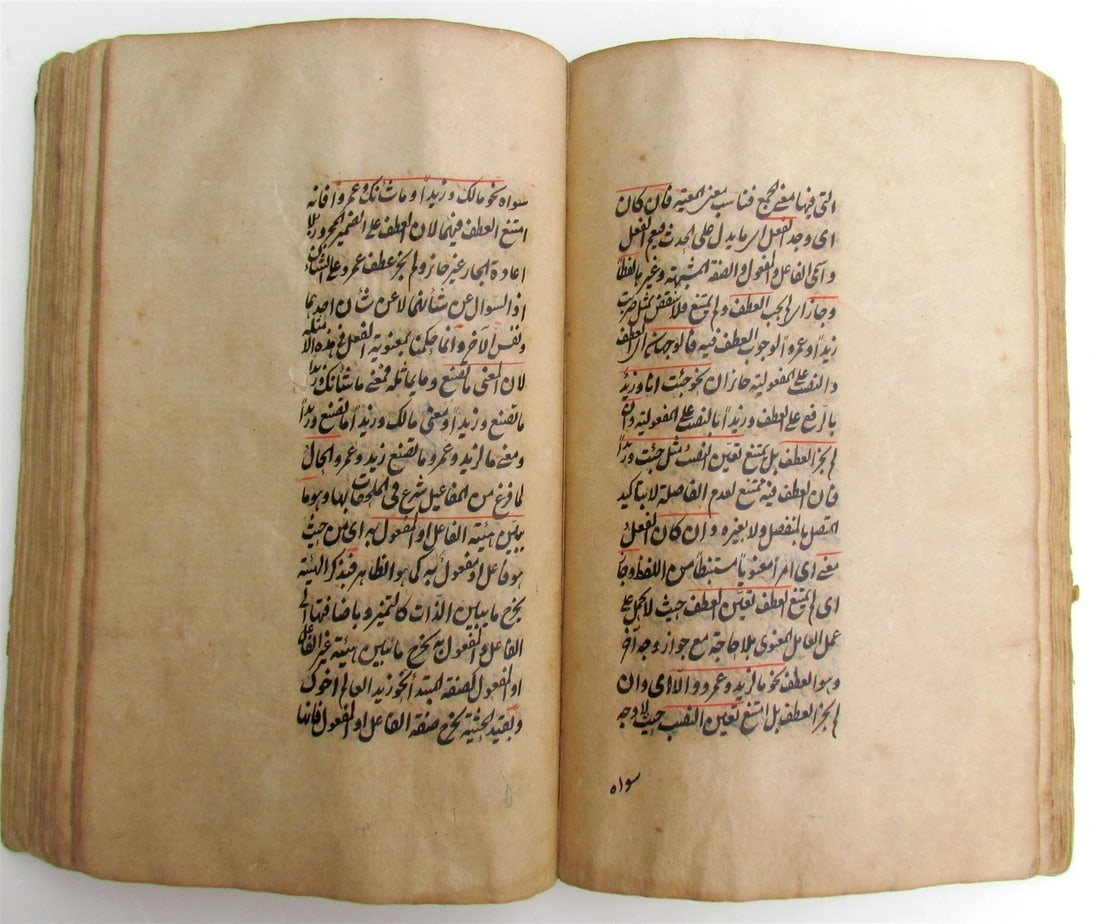 التى فيها معنى الجمع فناسب معنى المعية فان كان
اى وجد الفعل اى ما يدل على الحدث فيعم الفعل
واسمى الفاعل والمفعول والصفة المشبهة وغيرها لفظا
وجاز اى لم يجب العطف ولم يمتنع فلا ينتقض بمثل ضربت
زيدا وعمروا لوجوب العطف فيه فالوجهان اى العطف
والنصب على المفعولية جائزان نحو جئت انا وزيد
بالرفع على العطف وزيدا بالنصب على المفعولية وان
لم يجز العطف بل يمتنع تعين النصب مثل جئت وزيدا
فان العطف فيه ممتنع لعدم الفاصلة لا بتاكيد
المتصل بالمنفصل ولا بغيره وان كان الفعل
معنى اى امرا معنويا مستنبطا من اللفظ وجاز
اى لم يمتنع العطف تعين العطف حيث لا يحمل على
عمل العامل المعنوى بلا حاجة مع جواز وجه آخر
وهو العطف نحو ما لزيد وعمرو والا اى وان
لم يجز العطف بل امتنع تعين النصب حيث لا وجه
سواه
سواه نحو مالك وزيدا وما شانك وعمروا فانه
امتنع العطف فيهما لان العطف على الضمير المجرور بلا
اعادة الجار غير جائز ولم يجز عطف عمرو على الشان
اذ السوال عن شانهما لا عن شان احدهما
ونفس الآخر وانما حكمنا بمعنوية الفعل فى هذه الامثلة
لان المعنى ما تصنع وما يماثله فمعنى ما شانك وزيدا
ما تصنع وزيدا ومعنى مالك وزيدا ما تصنع وزيدا
ومعنى ما لزيد وعمرو ما تصنع زيد وعمرو الحال
لما فرغ من المفاعيل شرع فى الملحقات بها وهو ما
يبين هيئة الفاعل او المفعول به اى من حيث
هو فاعل او مفعول به كما هو الظاهر فبذكر الهيئة
يخرج ما يبين الذات كالتميز وباضافتها الى
الفاعل والمفعول به يخرج ما يبين هيئة غير الفاعل
او المفعول كصفة المبتدأ نحو زيد العالم اخوك
وبقيد الحيثية يخرج صفة الفاعل او المفعول فانها